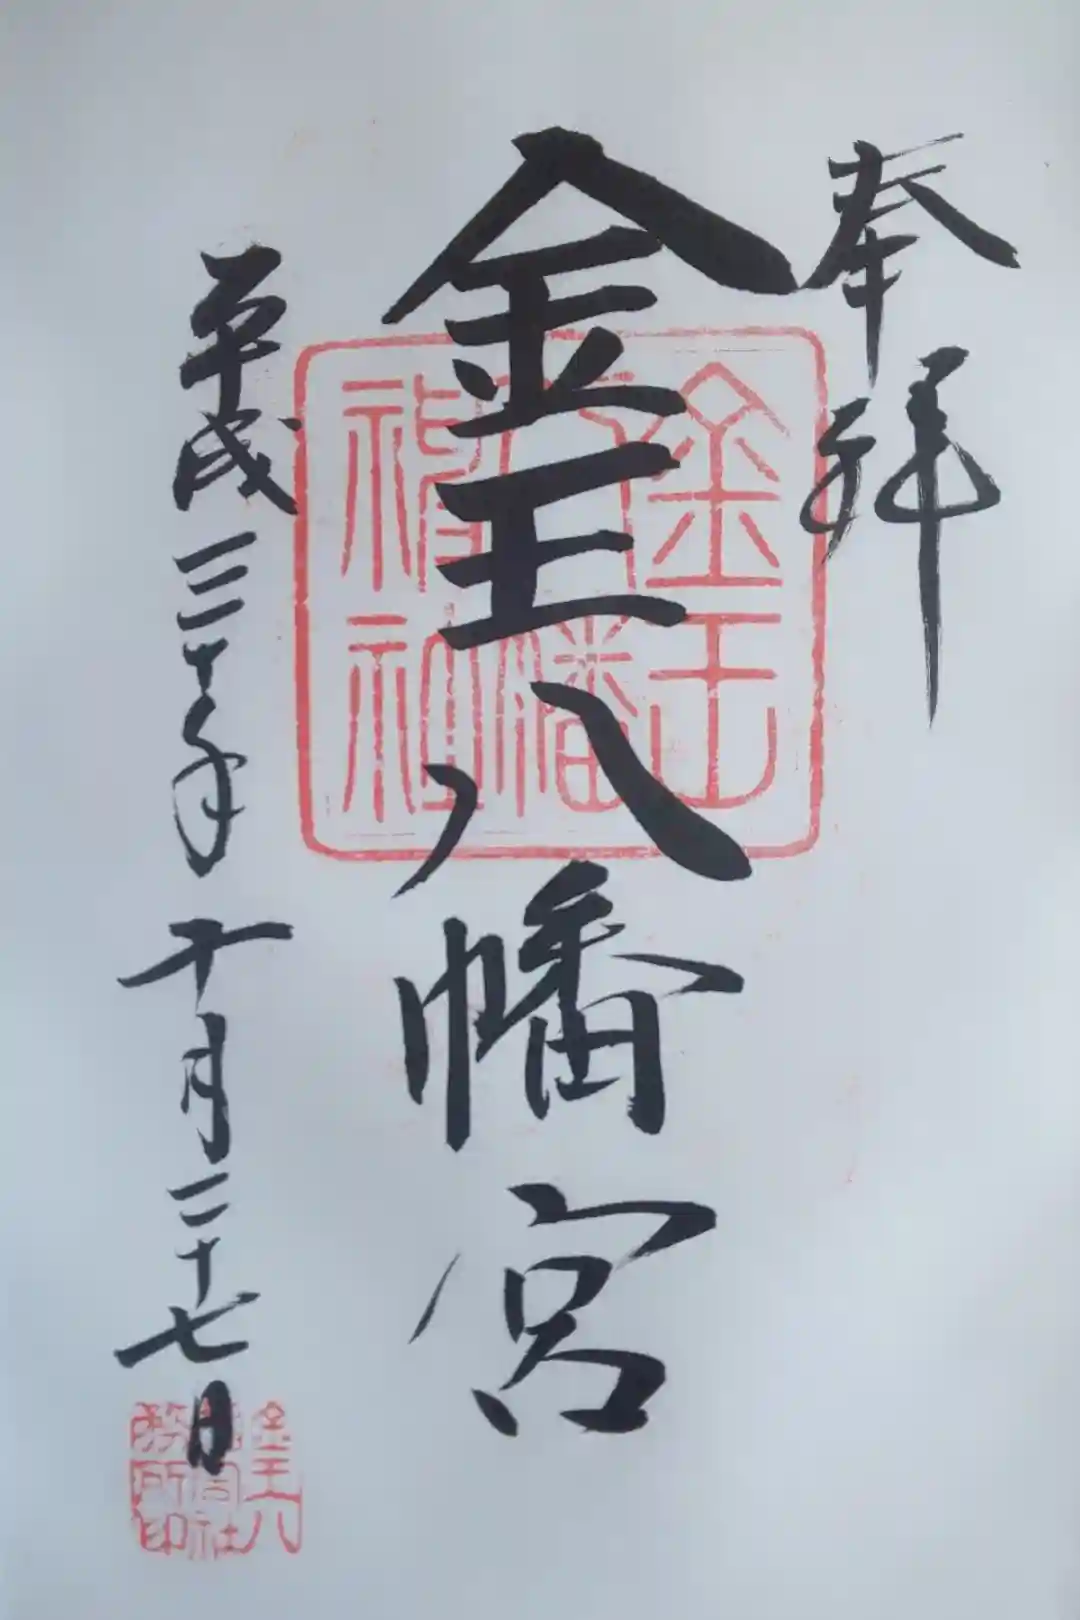 奉拝
金王八幡宮
平成三十年十月二十七日
金王八幡神社
金王八幡宮社務所印